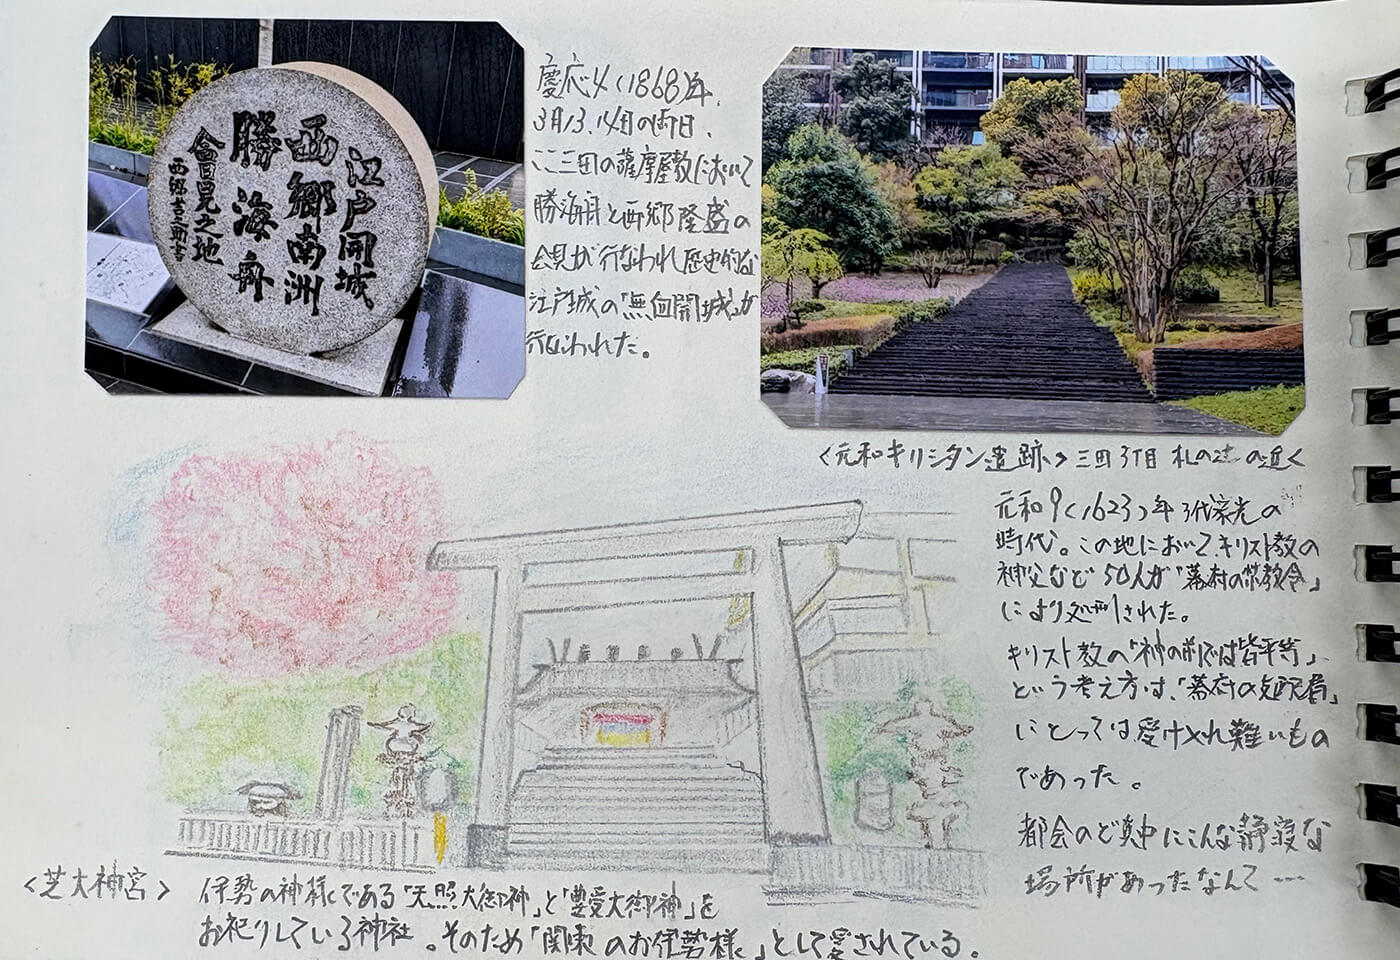 江戸開城
西郷南洲
勝海舟
會見之地
西郷吉之助書
慶応4(1868)年、
3月13、14日の両日、
ここ三田の薩摩屋敷において
勝海舟と西郷隆盛の
会見が行なわれ歴史的な
江戸城の「無血開城」が
行なわれた。
<元和キリシタン遺跡> 三田3丁目 札の辻の近く
元和9(1623)年 3代家光の
時代。この地において、キリスト教の
神父など50人が「幕府の禁教令」
により処刑された。
キリスト教の「神の前では皆平等」、
という考え方は、「幕府の支配層」
にとっては受け入れ難いもの
であった。
都会のど真中にこんな静寂な
場所があったなんて…
<芝大神宮>
伊勢の神様である「天照大御神」と「豊受大御神」を
お祀りしている神社。そのため「関東のお伊勢様」として愛されている。